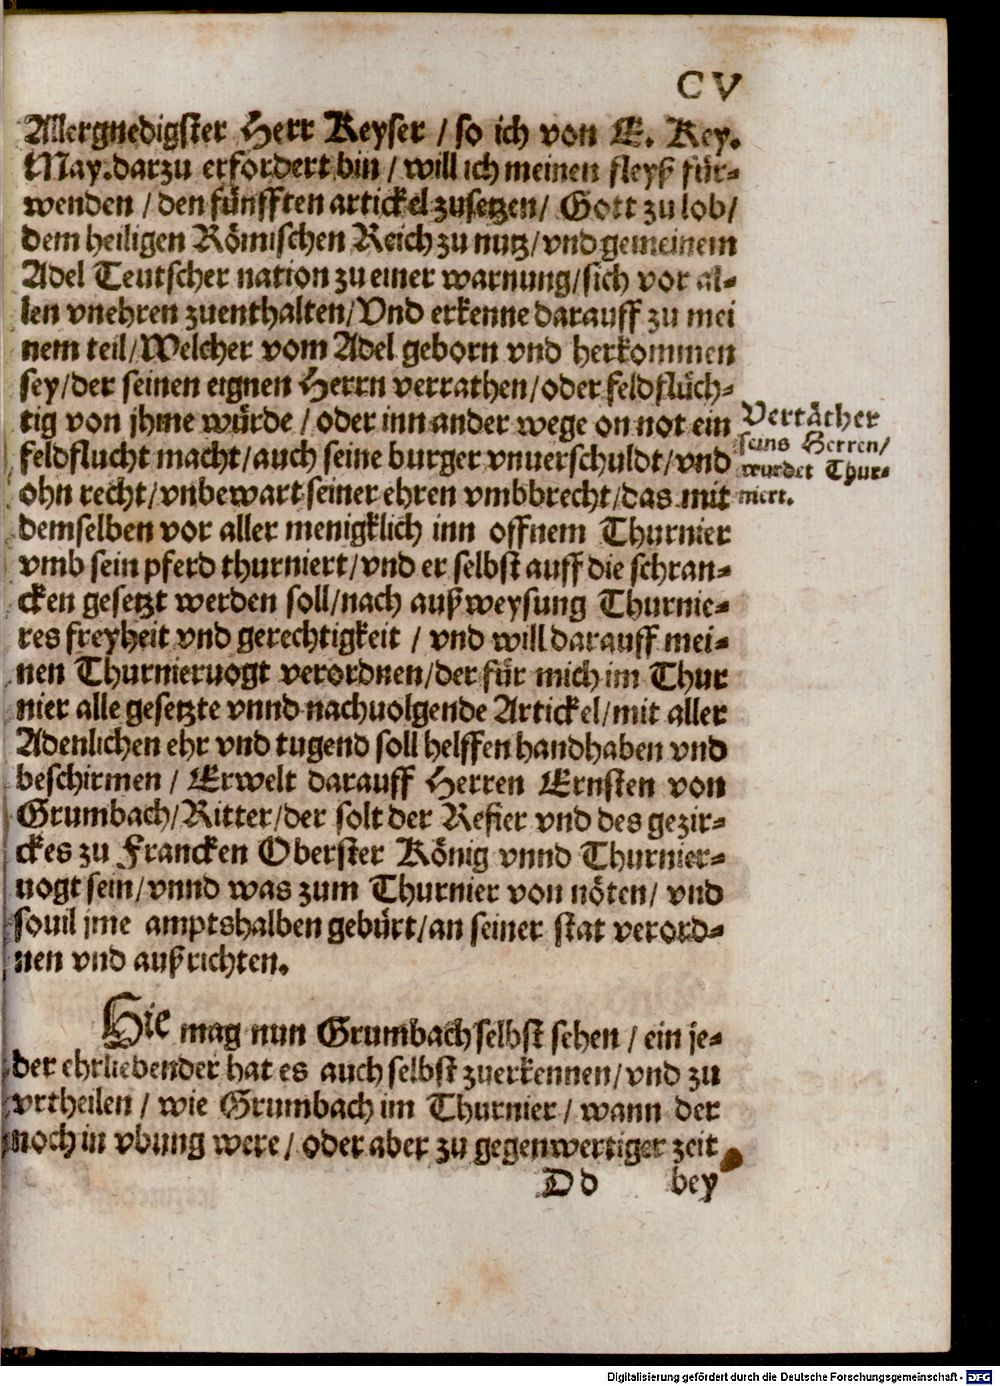 CV
Allergnedigster Herr Keyser / so ich von E. Key.
May. darzu erfordert bin / will ich meinen fleyß für-
wenden / den fünfften artickel zusetzen / Gott zu lob /
dem heiligen Römischen Reich zu nutz / vnd gemeinem
Adel Teutscher nation zu einer warnung / sich vor al-
len vnehren zuenthalten / Vnd erkenne darauff zu mei
nem teil / Welcher vom Adel geborn vnd herkommen
sey / der seinen eignen Herrn verrathen / oder feldflüch-
tig von jhme würde / oder inn ander wege on not ein
feldflucht macht / auch seine burger vnuerschuldt / vnd
ohn recht / vnbewart seiner ehren vmbbrecht / das mit
demselben vor aller menigklich inn offnem Thurnier
vmb sein pferd thurniert / vnd er selbst auff die schran-
cken gesetzt werden soll / nach außweysung Thurnie-
res freyheit vnd gerechtigkeit / vnd will darauff mei-
nen Thurnieruogt verordnen / der für mich im Thur
nier alle gesetzte vnnd nachuolgende Artickel / mit aller
Adenlichen ehr vnd tugend soll helffen handhaben vnd
beschirmen / Erwelt darauff Herren Ernsten von
Grumbach / Ritter / der solt der Refier vnd des gezir-
ckes zu Francken Oberster König vnnd Thurnier-
uogt sein / vnnd was zum Thurnier von nöten / vnd
souil jme amptshalben gebürt / an seiner stat verord-
nen vnd außrichten.
Vertäther
seins Herren /
wurdet Thur-
niert.
Hie mag nun Grumbach selbst sehen / ein je-
der ehrliebender hat es auch selbst zuerkennen / vnd zu
vrtheilen / wie Grumbach im Thurnier / wann der
noch in vbung were / oder aber zu gegenwertiger zeit
Dd bey
Digitalisierung gefördert durch die Deutsche Forschungsgemeinschaft - DFG